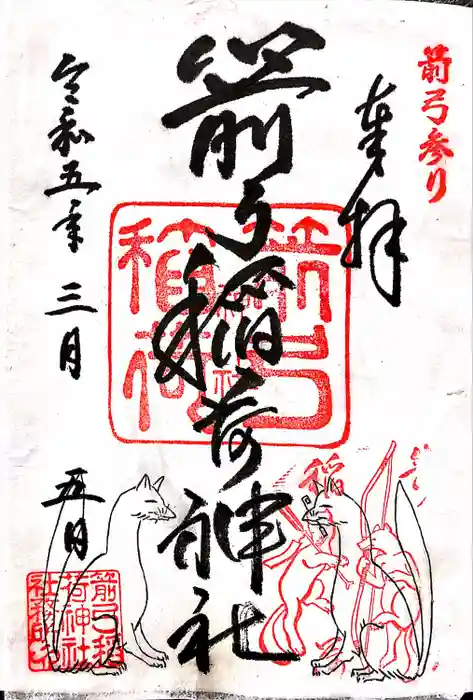 箭弓参り
奉拝
箭弓稲荷神社
箭弓
稲荷
令和五年 三月 五日
箭弓稲
荷神社
社務所之
稲